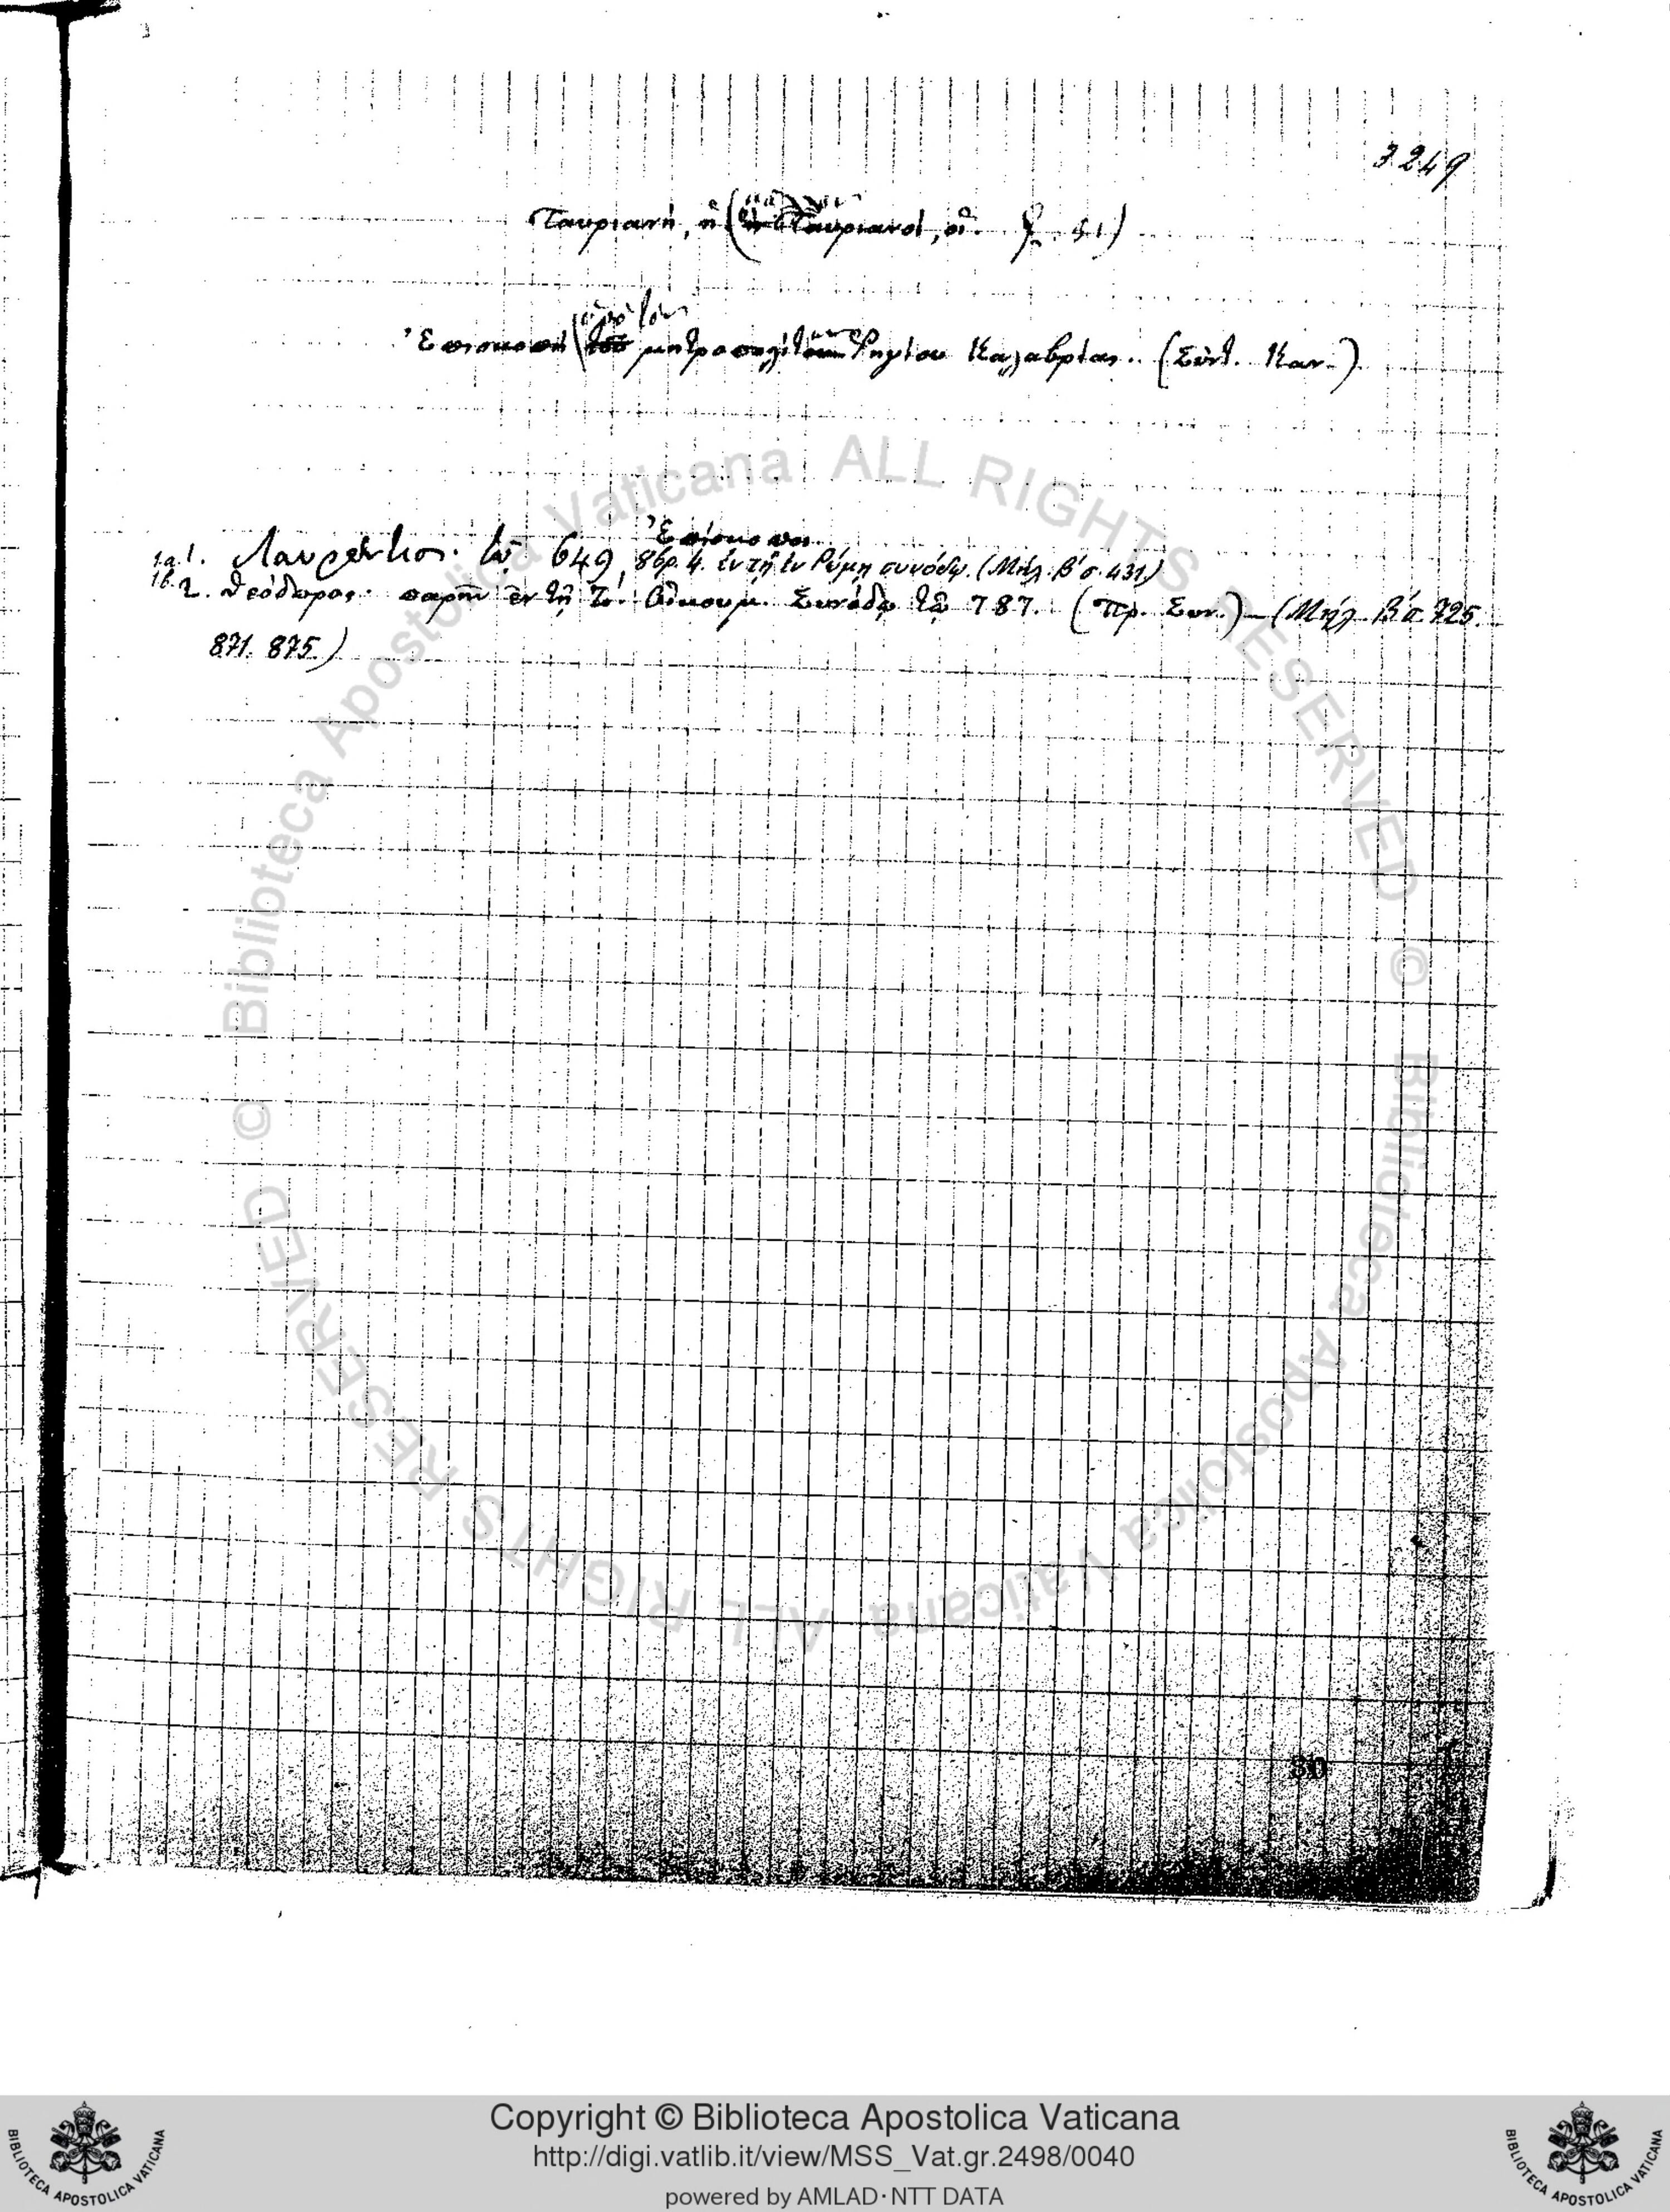 3249
Ταυριανή, ἡ (Ταυριανοί, οἱ.
Ἐπισκοπὴ ὑπὸ τὸν μητροπολίτην Ῥηγίου Καλαβρίας. (Σύντ. Καν.)
Ἐπίσκοποι
1α1. Λαυρέντιος. τῷ 649, 8βρ. 4. ἐν τῇ ἐν Ρώμῃ συνόδῳ. (Μήλ. Β´ σ. 431)
1β.2. Θεόδωρος. παρῆν ἐν τῇ Ζ´. Οἰκουμ. Συνόδῳ τῷ 787. (Πρ. Συν.) – (Μήλ. Β´ σ. 725.
871. 875.)
30
© Biblioteca Apostolica Vaticana ALL RIGHTS RESERVED
© Biblioteca Apostolica Vaticana ALL RIGHTS RESERVED
Copyright © Biblioteca Apostolica Vaticana
http://digi.vatlib.it/view/MSS_Vat.gr.2498/0040
powered by AMLAD·NTT DATA
BIBLIOTECA APOSTOLICA VATICANA
BIBLIOTECA APOSTOLICA VATICANA